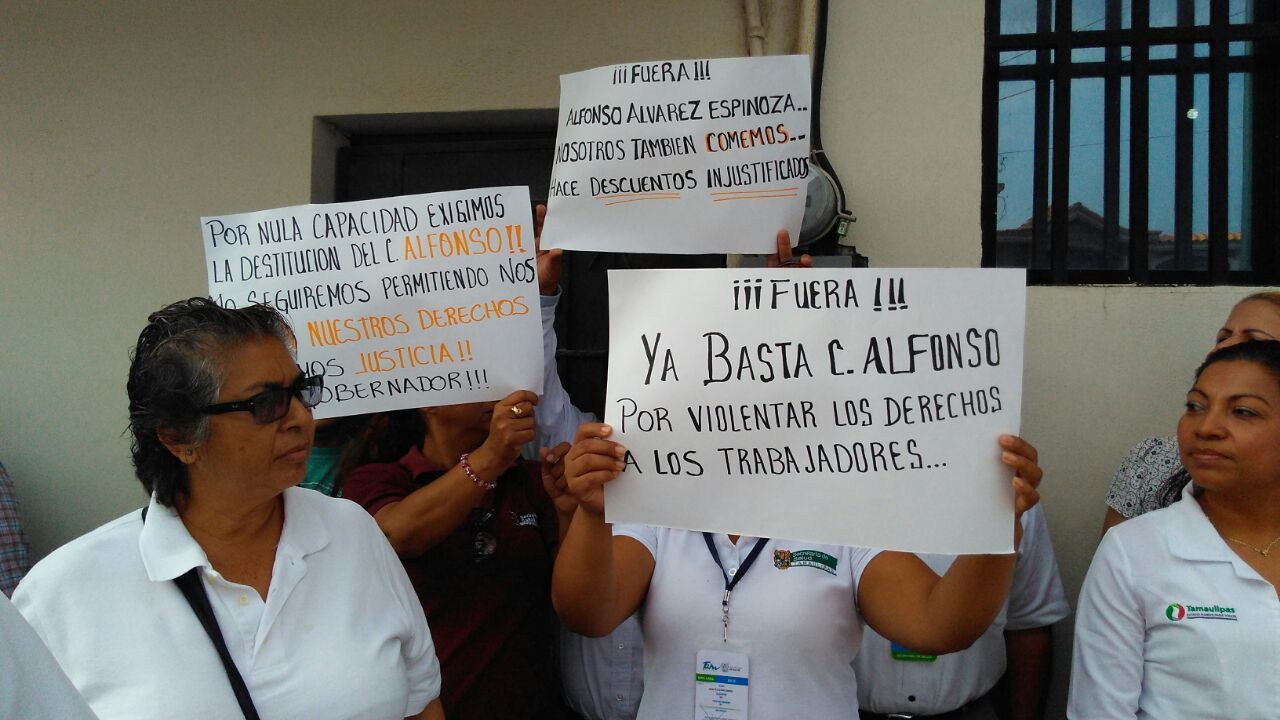 ¡¡¡FUERA!!!
ALFONSO ALVAREZ ESPINOZA..
NOSOTROS TAMBIEN COMEMOS...
HACE DESCUENTOS INJUSTIFICADOS
POR NULA CAPACIDAD EXIGIMOS
LA DESTITUCION DEL C. ALFONSO!!
NO SEGUIREMOS PERMITIENDO NOS
NUESTROS DERECHOS
JUSTICIA!!
GOBERNADOR!!!
¡¡¡FUERA!!!
YA BASTA C. ALFONSO
POR VIOLENTAR LOS DERECHOS
A LOS TRABAJADORES...
Secretaría de
Salud
TAMAULIPAS
Tamaulipas
Tam